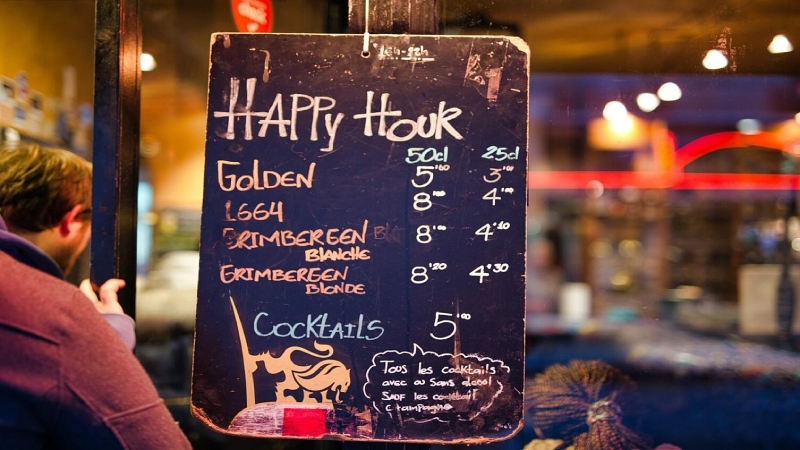 16h-22h
HAPPy HOUR
50cl 25cl
GOLDEN 5'00 3'00
1664 8'00 4'00
GRIMBERGEEN 8'00 4'10
BLANCHE
GRIMBERGEEN 8'20 4'30
BLONDE
COCKTAILS 5'00
Tous les cocktails
avec ou Sans alcool
SAUF les cocktail
Champagne